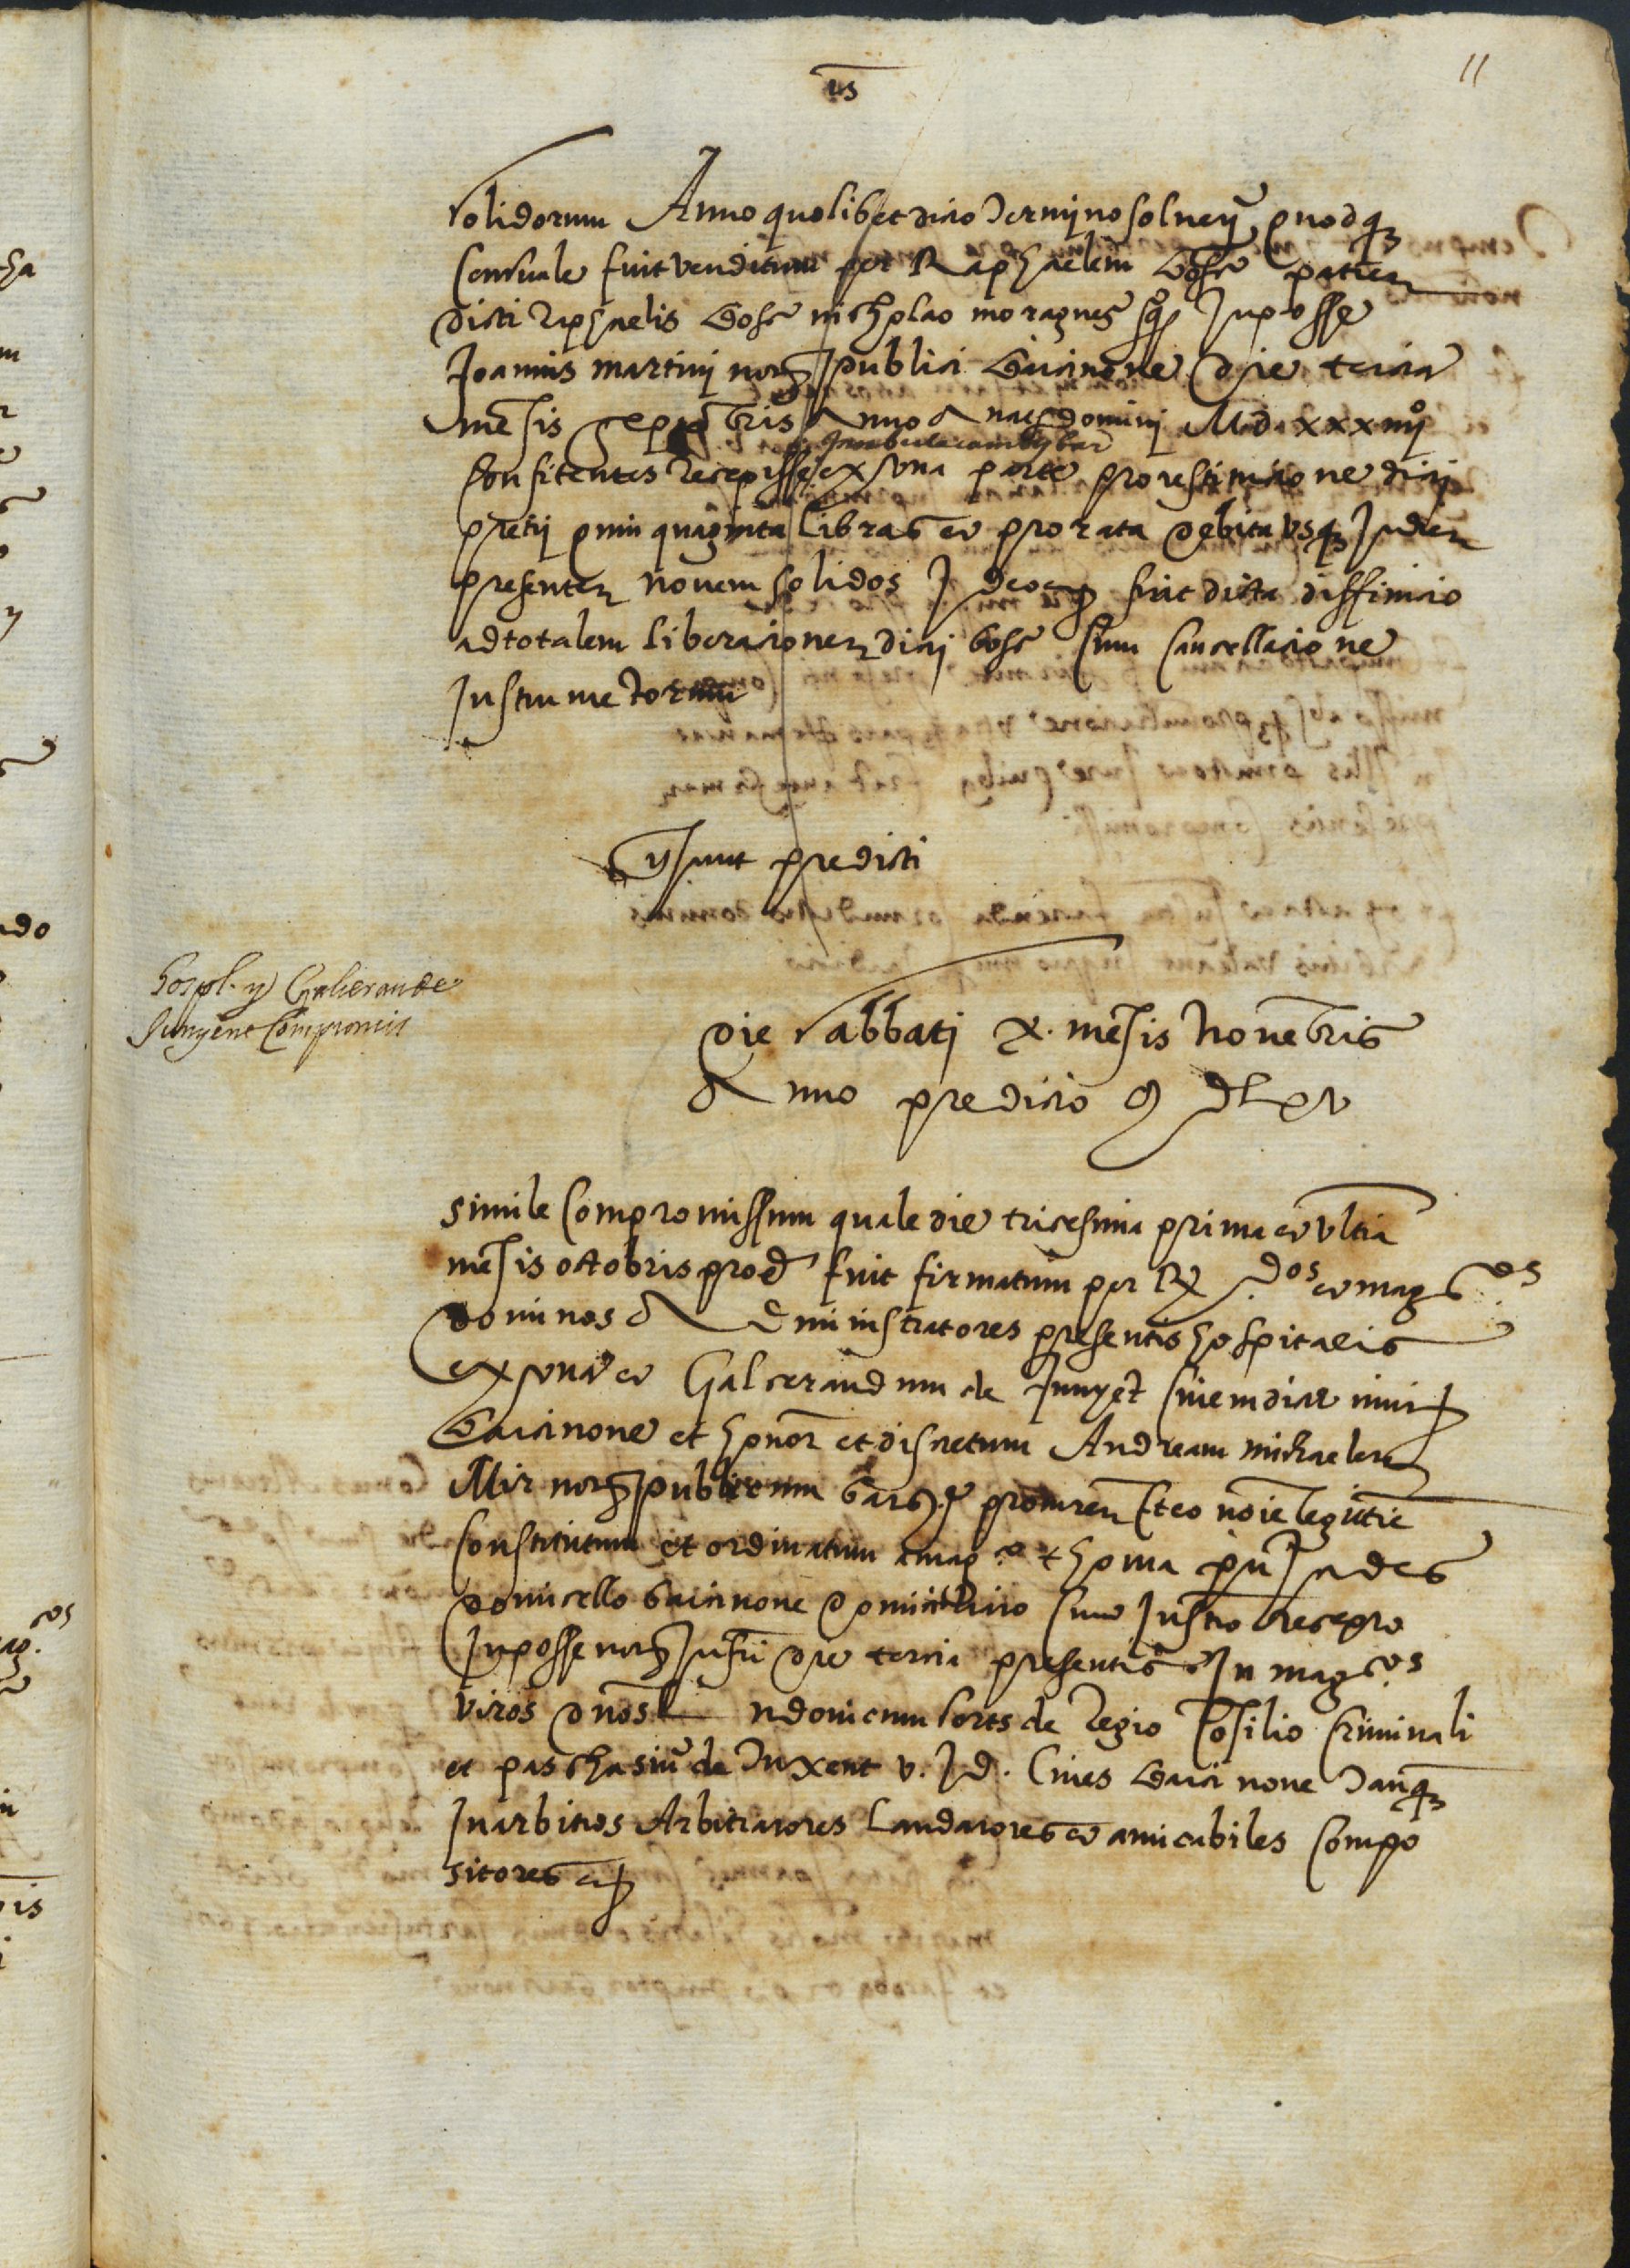 11
us
solidorum Anno quolibet dicto termino solven̄ quodq
Censuale fuit venditum per Raphaelem Bosc̃ patrem
dicti Raphaelis Bosc̃ nicholao moragues In posse
Joannis martini not publici Barcinone die tercia
mẽsis septẽbris Anno A nat domini M d xxxiiijº
Confitentes recepisse ex una parte pro restitucione dicti
pretij quinquaginta libras et pro rata debita usq In diem
presentem novem solidos Ideoq fuit dicta diffinicio
ad totalem liberacionem dicti Bosc̃ Cum Cancellacione
Instrumẽtorum
sunt predicti
Hospl. y Galserande
Junyent Compromis
Die sabbati x. mẽsis Novẽbris
Anno predicto M D L x v
Simile Compromissum quale die tricesima prima et ultĩa
mẽsis octobris prod fuit firmatum per R.dos et mag.cos
dominos Administratores presentis hospitalis
ex una et Galcerandum de Junyẽt Civem
Barcinone et honor et discretum Andream michaelem
Mir not publicum Barc̃ procurem et eo nõie legittie
Constitutum et ordinatum a mag.co thoma pujades
domicello Barcinone domiciliato Cum Instro recepto
In posse not Infrĩ die tercia presentis In mag.cos
viros dnos Ludovicum sorts de Regio Cõsilio Criminali
et paschasiũ de Juxent v. J d. Cives Barcinone tanq
In arbitros Arbitratores Laudatores et amicabiles Compo
sitores et